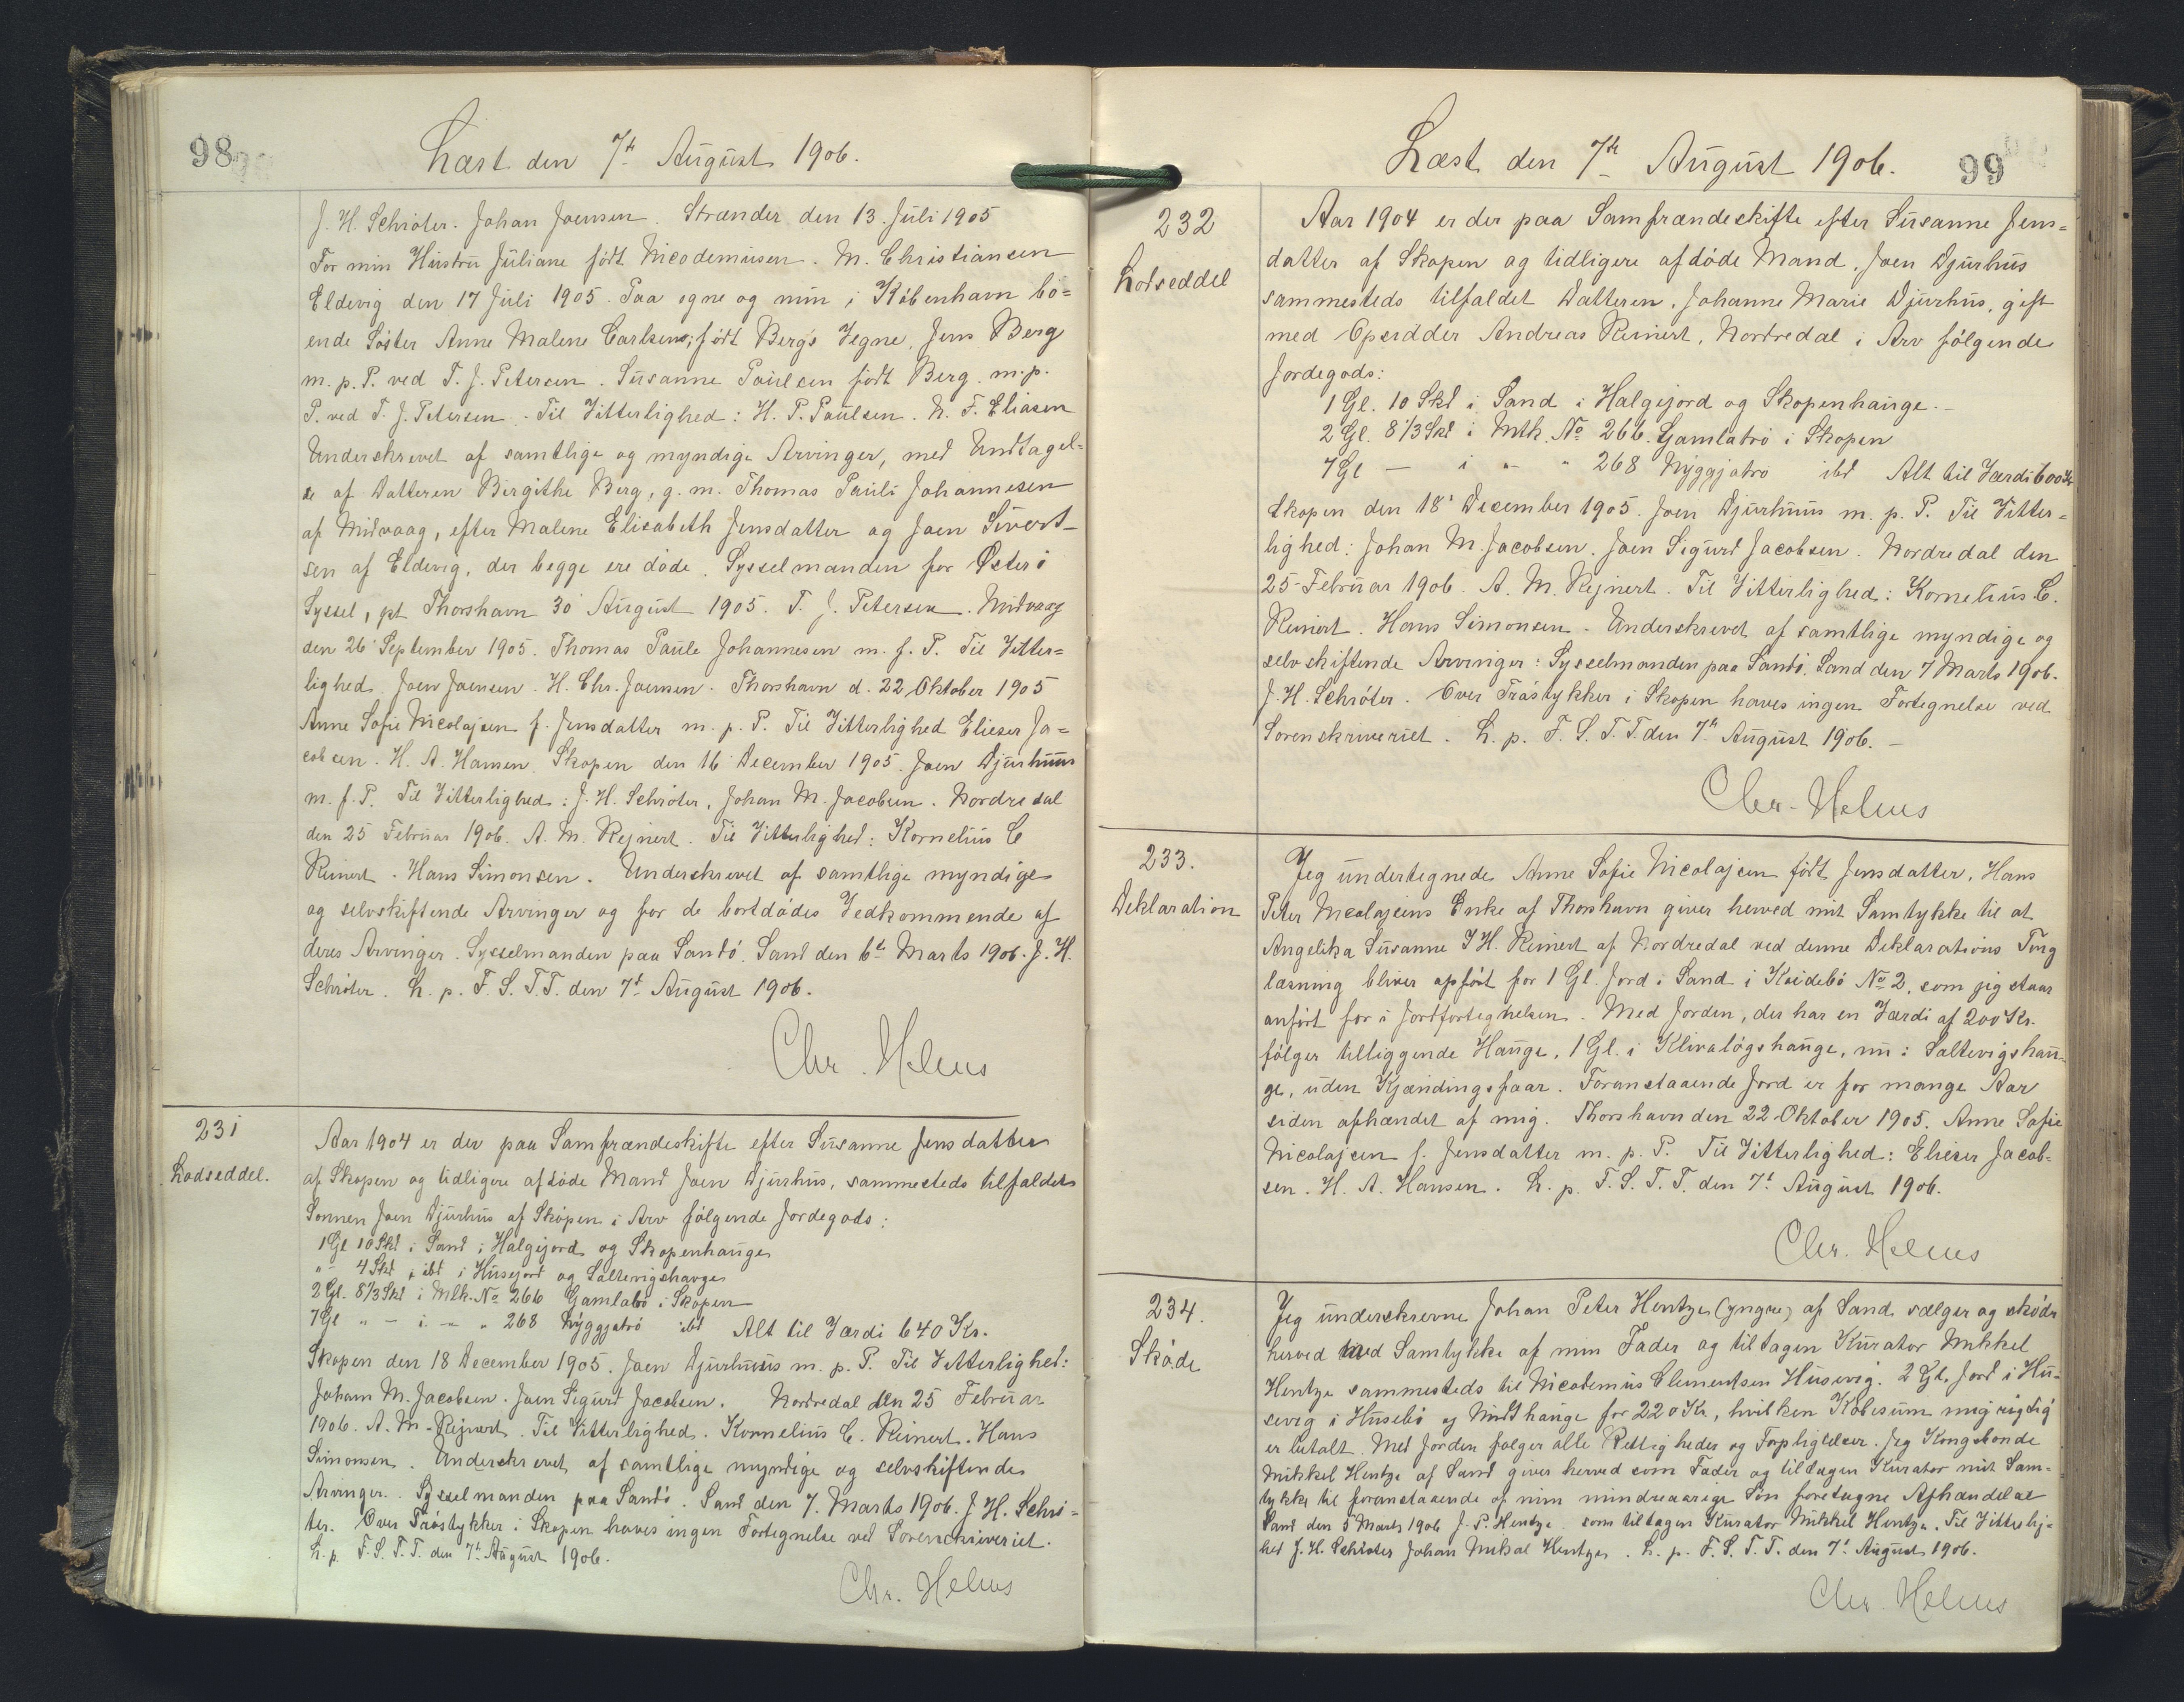 98
Læst den 7de August 1906.
J. H. Schröter. Johan Joensen. Strænder den 13. Juli 1905
For min Hustru Juliane født Nicodemusen. M. Christiansen
Eldevig den 17 Juli 1905. Paa egne og min i København bo=
ende Søster Anne Malene Carlsens, født Berg's Vegne, Jens Berg
m. p. P. ved T. J. Petersen. Susanne Poulsen født Berg. m. p.
P. ved T. J. Petersen. Til Vitterlighed: H. P. Poulsen. N. F. Eliasen
Underskrevet af samtlige og myndige Arvinger, med Undtagel=
se af Datteren Birgithe Berg, g. m. Thomas Pauli Johannesen
af Midvaag, efter Malene Elisabeth Jensdatter og Joen Sivert-
sen af Eldevig, der begge ere døde. Sysselmanden for Østerø
Syssel, pt Thorshavn 30 August 1905. T. J. Petersen. Midvaag
den 26 September 1905. Thomas Paule Johannesen m. f. P. Til Vitter=
lighed Joen Joensen. H. Chr. Joensen. Thorshavn d. 22 Oktober 1905
Anne Sofie Nicolajsen f. Jensdatter m. p. P. Til Vitterlighed Elieser Ja=
cobsen. H. A. Hansen. Skopen den 16 December 1905. Joen Djurhuus
m. f. P. Til Vitterlighed: J. H. Schröter, Johan M. Jacobsen. Nordredal
den 25 Februar 1906. A. M. Rejnert. Til Vitterlighed: Kornelius C
Reinert. Hans Simonsen. Underskrevet af samtlige myndige
og selvskiftende Arvinger og for de bortdødes Vedkommende af
deres Arvinger. Sysselmanden paa Sandø. Sand den 6te Marts 1906. J. H.
Schröter. L. p. F. S. T. T. den 7de August 1906.
Chr. Helms
231
Lodseddel.
Aar 1904 er der paa Samfrændeskifte efter Susanne Jensdatter
af Skopen og tidligere afdøde Mand Joen Djurhus, sammesteds tilfaldet
Sønnen Joen Djurhus af Skopen i Arv følgende Jordegods:
1 Gl 10 Skd i Sand i Halgijord og Skopenhauge
" - 4 Skd i ibd i Husejord og Saltevigshauge
2 Gl. 8 1/3 Skd i Mtk. No 266 Gamlabø i Skopen
7 Gl " - i - " 268 Nýggjatrø ibd Alt til Værdi 640 Kr.
Skopen den 18 December 1905. Joen Djurhuus m. p. P. Til Vitterlighed:
Johan M. Jacobsen. Joen Sigurd Jacobsen. Nordredal den 25 Februar
1906. A. M. Rejnert. Til Vitterlighed. Kornelius C. Reinert. Hans
Simonsen. Underskrevet af samtlige myndige og selvskiftende
Arvinger. Sysselmanden paa Sandø. Sand den 7. Marts 1906. J. H. Schrø=
ter. Over Trøstykker i Skopen haves ingen Fortegnelse ved Sorenskriveriet.
L. p. F. S. T. T. den 7de August 1906.
Chr. Helms
Læst den 7de August 1906.
99
232
Lodseddel
Aar 1904 er der paa Samfrændeskifte efter Susanne Jens=
datter af Skopen og tidligere afdøde Mand, Joen Djurhus
sammesteds tilfaldet Datteren, Johanne Marie Djurhus, gift
med Opsidder Andreas Reinert, Nordredal i Arv følgende
Jordegods:
1 Gl. 10 Skd i Sand i Halgijord og Skopenhauge.
2 Gl. 8 1/3 Skd i Mtk. No 266. Gamlatrø i Skopen
7 Gl - i " " 268 Nýggjatrø ibd Alt til Værdi 600 Kr
Skopen den 18' December 1905. Joen Djurhuus m. p. P. Til Vitter=
lighed: Johan M. Jacobsen. Joen Sigurd Jacobsen. Nordredal den
25 Februar 1906. A. M. Rejnert. Til Vitterlighed: Kornelius C.
Reinert. Hans Simonsen. Underskrevet af samtlige myndige og
selvskiftende Arvinger: Sysselmanden paa Sandø. Sand den 7 Marts 1906.
J. H. Schröter. Over Trøstykker i Skopen haves ingen Fortegnelse ved
Sorenskriveriet. L. p. F. S. T. T. den 7de August 1906.
Chr. Helms
233.
Deklaration
Jeg undertegnede Anne Sofie Nicolajsen født Jensdatter, Hans
Peter Nicolajsens Enke af Thorshavn giver herved mit Samtykke til at
Angelika Susanne J H. Reinert af Nordredal ved denne Deklarations Ting
læsning bliver opført for 1 Gl. Jord i Sand i Koidebø No 2, som jeg staar
anført for i Jordfortegnelsen. Med Jorden, der har en Værdi af 200 Kr.
følger tilliggende Hauge, 1 Gl. i Klivaløgshauge, nu: Saltevigshau-
ge, uden Kjændingsfaar. Foranstaaende Jord er for mange Aar
siden afhændet af mig. Thorshavn den 22 Oktober 1905. Anne Sofie
Nicolajsen f. Jensdatter m. p. P. Til Vitterlighed: Elieser Jacob=
sen. H. A. Hansen. L. p. F. S. T. T. den 7de August 1906.
Chr. Helms
234.
Skøde
Jeg underskrevne Johan Peter Hentze (yngre) af Sand sælger og skøde
herved med Samtykke af min Fader og tiltagen Kurator Mikkel
Hentze sammesteds til Nicodemus Clementsen Husevig. 2 Gl. Jord i Hu-
sevig i Husebø og Midthauge for 220 Kr, hvilken Købesum mig rigtig
er betalt. Med Jorden følger alle Rettigheder og Forpligtelser. Jeg Kongsbonde
Mikkel Hentze af Sand giver herved som Fader og tiltagen Kurator mit Sam=
tykke til foranstaaende af min mindreaarige Søn foretagne Afhændelse
Sand den 5 Marts 1906 J. P. Hentze. som tiltagen Kurator Mikkel Hentze. Til Vitterlig=
hed J. H. Schröter Johan Mikal Hentze. L. p. F. S. T. T. den 7de August 1906.
Chr. Helms